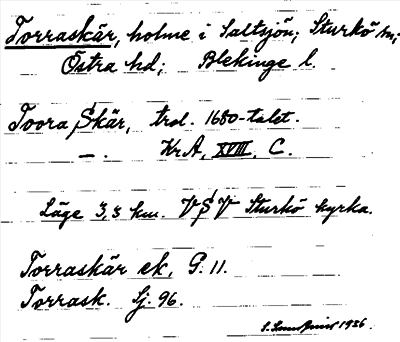 Torraskär, holme i Saltsjön; Sturkö sn;
Östra hd; Blekinge l.
Toora Skär, trol. 1680-talet.
—. KrA, XVIII, C.
Läge 3,3 km. VSV Sturkö kyrka.
Torraskär ek, G. 11.
Torrask. Sj. 96.
1936